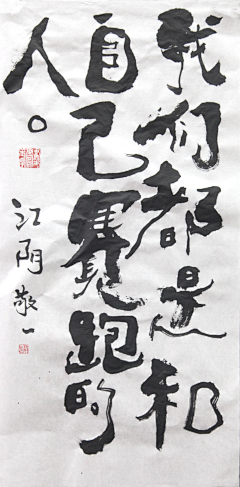 我们都是和
自己赛跑的
人。
江阴敬一